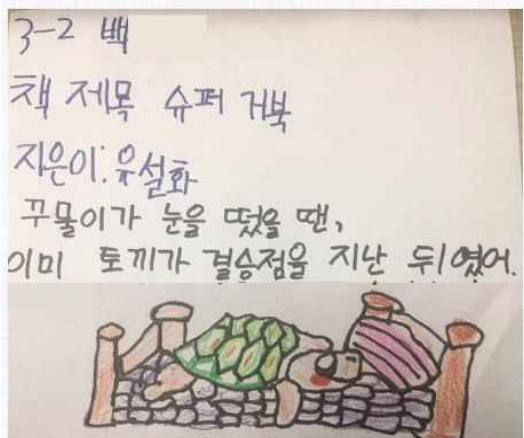 3-2 백
책 제목 슈퍼 거북
지은이: 유설화
꾸물이가 눈을 떴을 땐,
이미 토끼가 결승점을 지난 뒤였어.